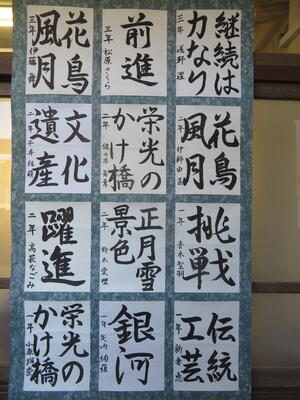 継続は
力なり
三年 浅野 遥
前進
三年 松原さくら
花鳥
風月
三年 伊藤 舞
花鳥
風月
二年
栄光の
かけ橋
二年 佐々木
文化
遺産
二年
挑戦
一年 青木聖羽
正月雪
景色
二年 鈴木愛理
躍進
二年 高萩なごみ
伝統
工芸
一年
銀河
一年 矢内絢雅
栄光の
かけ橋
一年 小原